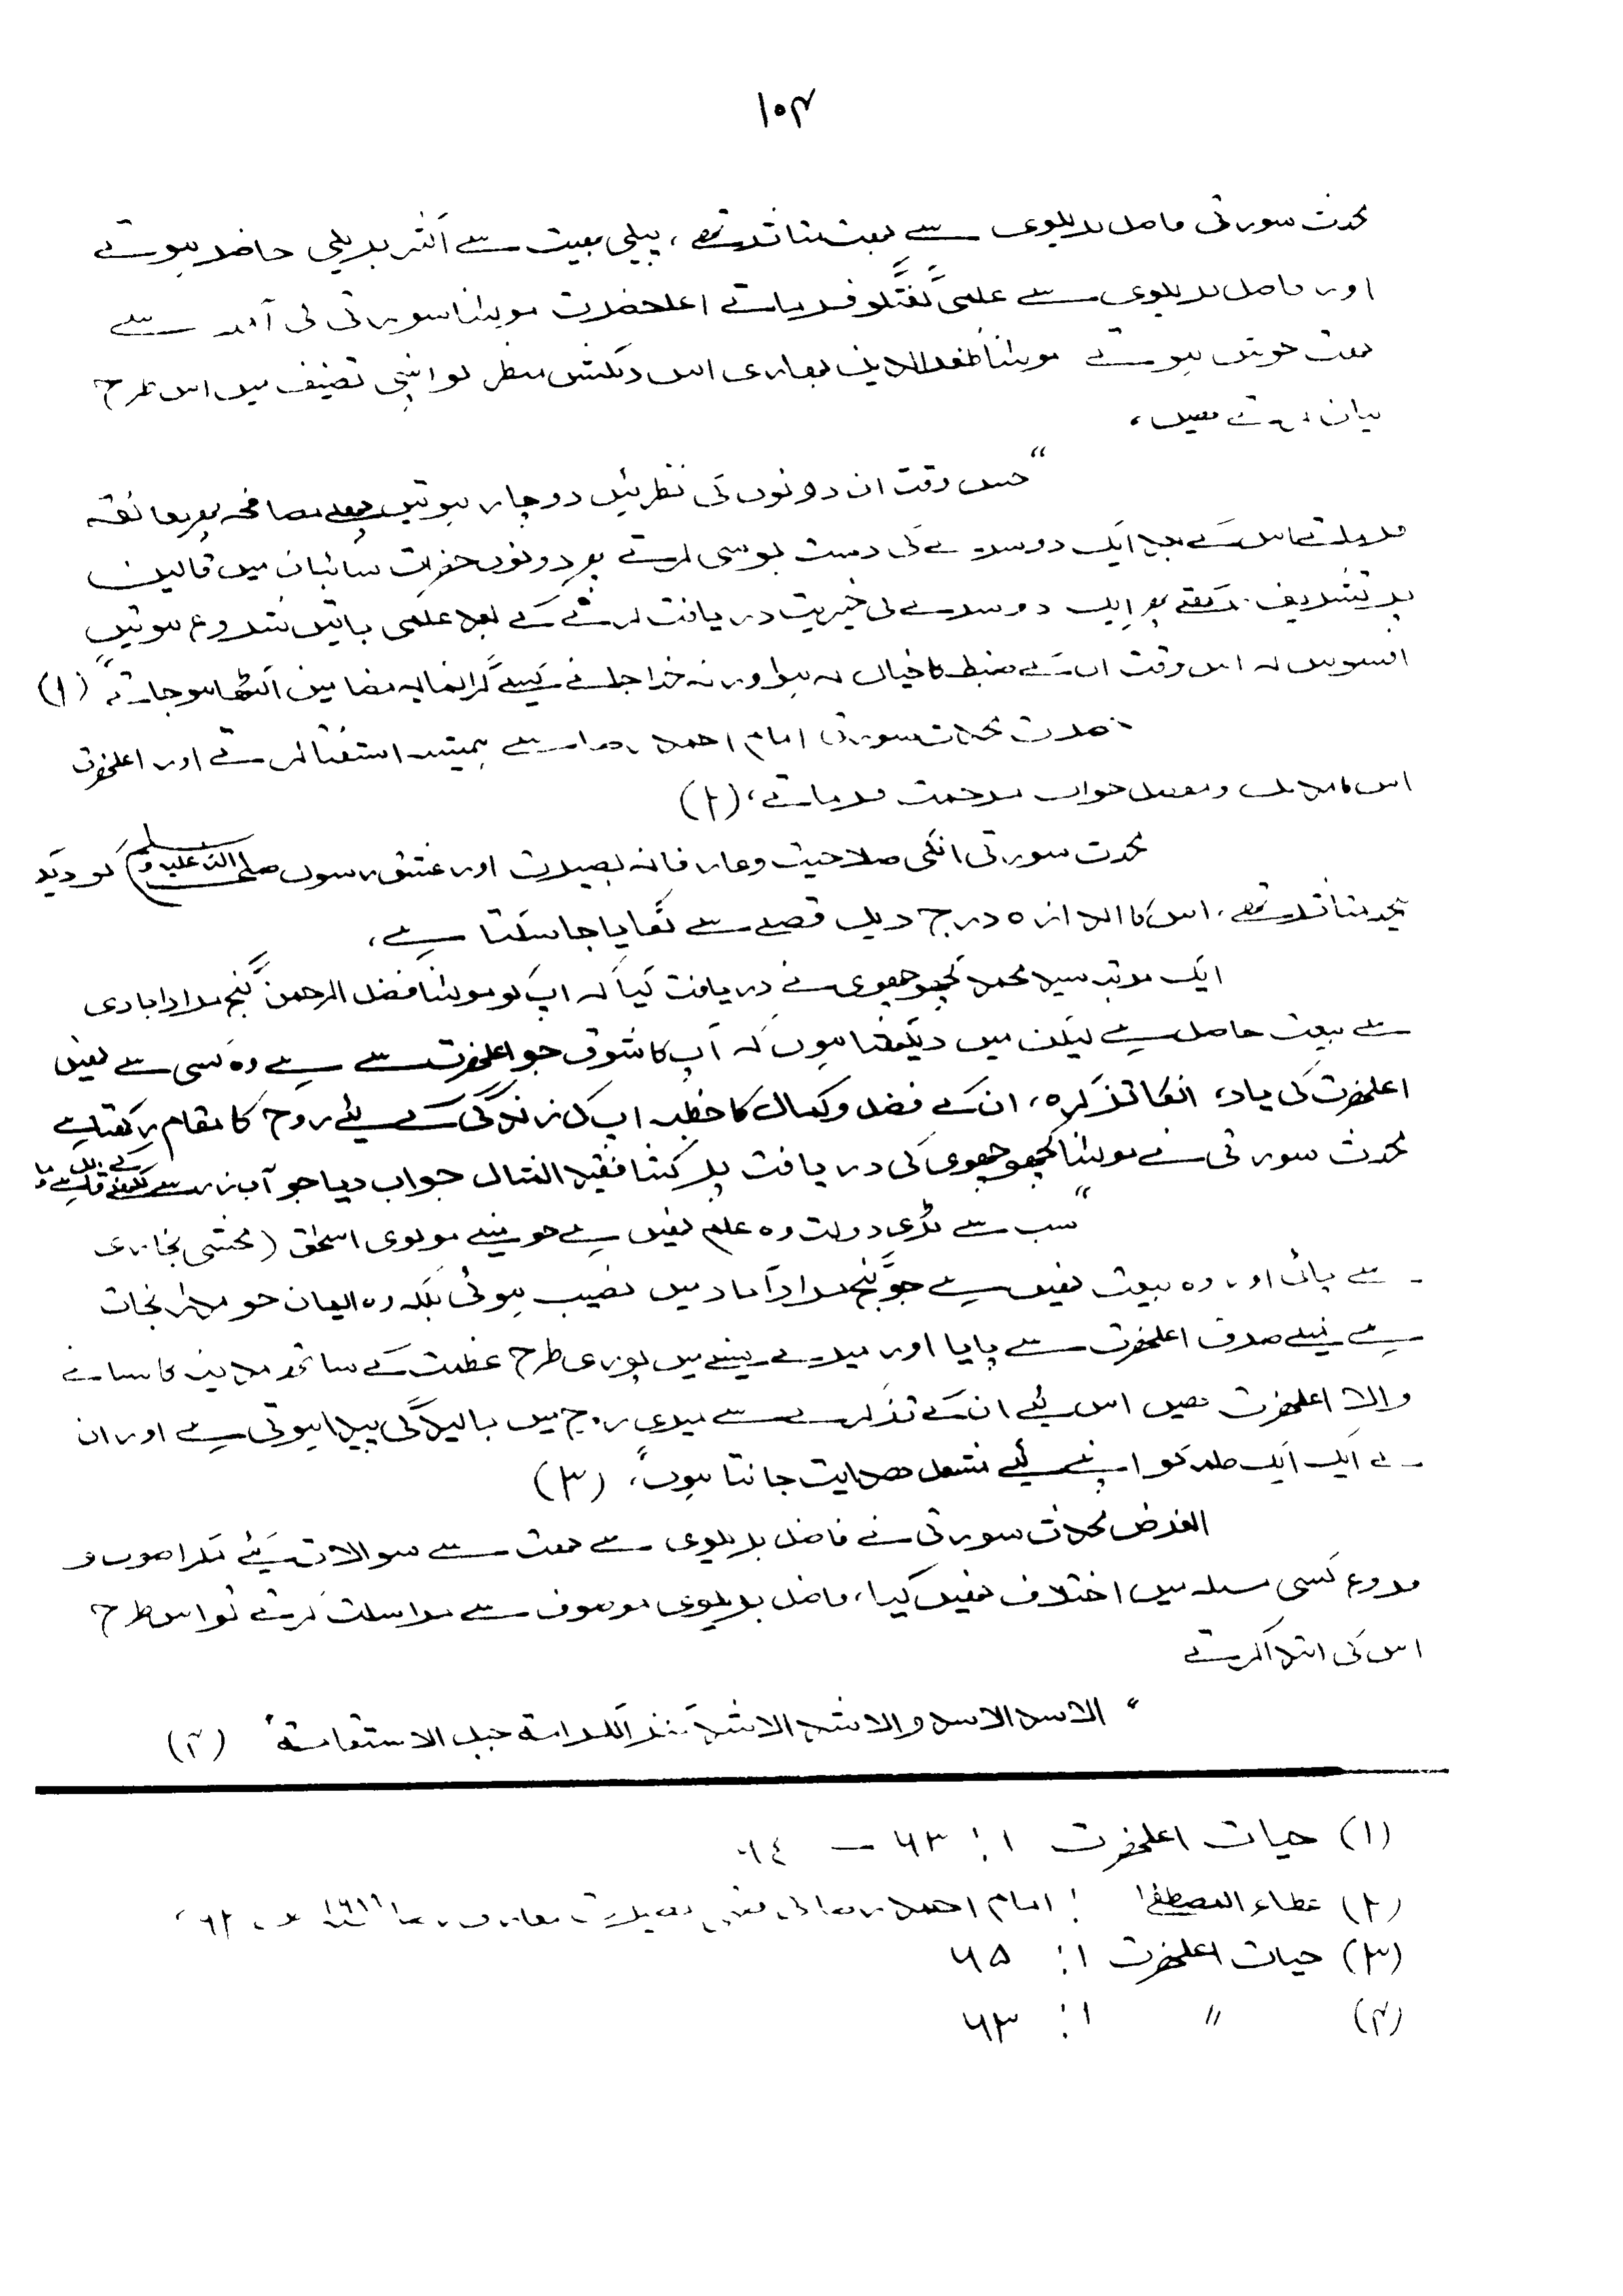 ۱۰۴
محدث سورتی فاضل بریلوی سے بہت متاثر تھے، پیلی بھیت سے اکثر بریلی حاضر ہوتے
اور فاضل بریلوی سے علمی گفتگو فرماتے اعلحضرت مولٰنا سورتی کی آمد سے
بہت خوش ہوتے مولٰنا ظفر الدین بہاری اس دلکش منظر کو اپنی تصنیف میں اس طرح
بیان کرتے ھیں،
“جس وقت ان دونوں کی نظریں دو چار ہوتیں پہلے مصافحہ پھر معانقہ
فرماتے اس کے بعد ایک دوسرے کی دست بوسی کرتے پھر دونوں حضرات سائبان میں قالین
پر تشریف رکھتے پھر ایک دوسرے کی خیریت دریافت کرنے کے بعد علمی باتیں شروع ہوتیں
افسوس کہ اس وقت ان کے ضبط کا خیال نہ ہوا ورنہ خدا جانے کیسے گرانمایہ مضامین اکٹھا ہو جاتے" (۱)
حضرت محدث سورتی امام احمد رضا سے ہمیشہ استفتا کرتے اور اعلحضرت
اس کا مدلل و مفصل جواب مرحمت فرماتے، (۲)
محدث سورتی انکی صلاحیت و عارفانہ بصیرت اور عشق رسول (صلی اللہ علیہ وسلم) کو دیکھ
بیحد متاثر تھے، اس کا اندازہ درج ذیل قصے سے لگایا جا سکتا ہے،
ایک مرتبہ سید محمد کچھوچھوی نے دریافت کیا کہ آپ کو مولٰنا فضل الرحمن گنج مرادابادی
سے بیعت حاصل ہے لیکن میں دیکھتا ہوں کہ آپ کا شوق جو اعلحضرت سے ہے وہ کسی سے نہیں
اعلحضرت کی یاد، انکا تذکرہ، ان کے فضل و کمال کا خطبہ آپ کی زندگی کے لئے روح کا مقام رکھتا ہے
محدث سورتی نے مولٰنا کچھوچھوی کی دریافت پر کتنا فقید المثال جواب دیا جو آب زر سے لکھنے کے قابل ہے
“سب سے بڑی دولت وہ علم نہیں ہے جو مینے مولوی اسحٰق (محشی بخاری
سے پائی اور وہ بیعت نہیں ہے جو گنج مرادآباد میں نصیب ہوئی بلکہ وہ ایمان جو مدار نجات
ہے مینے صرف اعلحضرت سے پایا اور میرے سینے میں پوری طرح عظمت کے ساتھ مدینہ کا بسانے
والا اعلحضرت ھیں اس لئے ان کے تذکرے سے میری روح میں بالیدگی پیدا ہوتی ہے اور ان
کے ایک ایک کلمہ کو اپنے لئے مشعل ھدایت جانتا ہوں"، (۳)
الغرض محدث سورتی نے فاضل بریلوی سے بہت سے سوالات کیئے مگر اصول و
فروع کسی مسلہ میں اختلاف نہیں کیا، فاضل بریلوی موصوف سے مراسلت کرتے تو اس طرح
اس کی ابتدا کرتے
“الاسد الاسد والاشد الاشد کنز الکرامة جبل الاستقامة" (۴)
(۱) حیات اعلحضرت ۱: ۶۳ – ۶۴
(۲) عطاء المصطفیٰ : امام احمد رضا کی بصیرت معارف رضا
(۳) حیات اعلحضرت ۱: ۶۵
(۴) " ۱: ۶۳